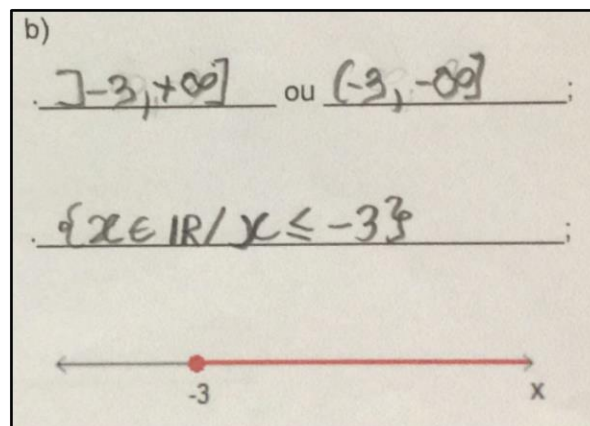 b)
. ]-3, +∞] ou (-3, -∞] ;
. {x ∈ IR / x ≤ -3} ;
-3 x